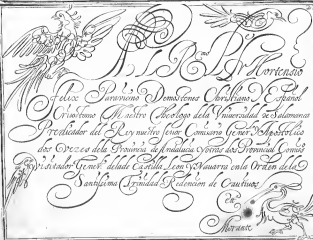 Al R.mo P. F. Hortensio
Felix Paravicino Demostenes Christiano Y Español
Crisostomo Maestro Theologo de la Vniuersidad de Salamanca
Predicador del Rey nuestro señor Comisario Gener.l Apostolico
dos Vezes de la Prouincia de Andalucia y otras dos Prouincial Comis.o
Visitador Gener.l de la de Castilla Leon y Nauarra en la Orden de la
Santissima Trinidad Redencion de Cautiuos
Morante